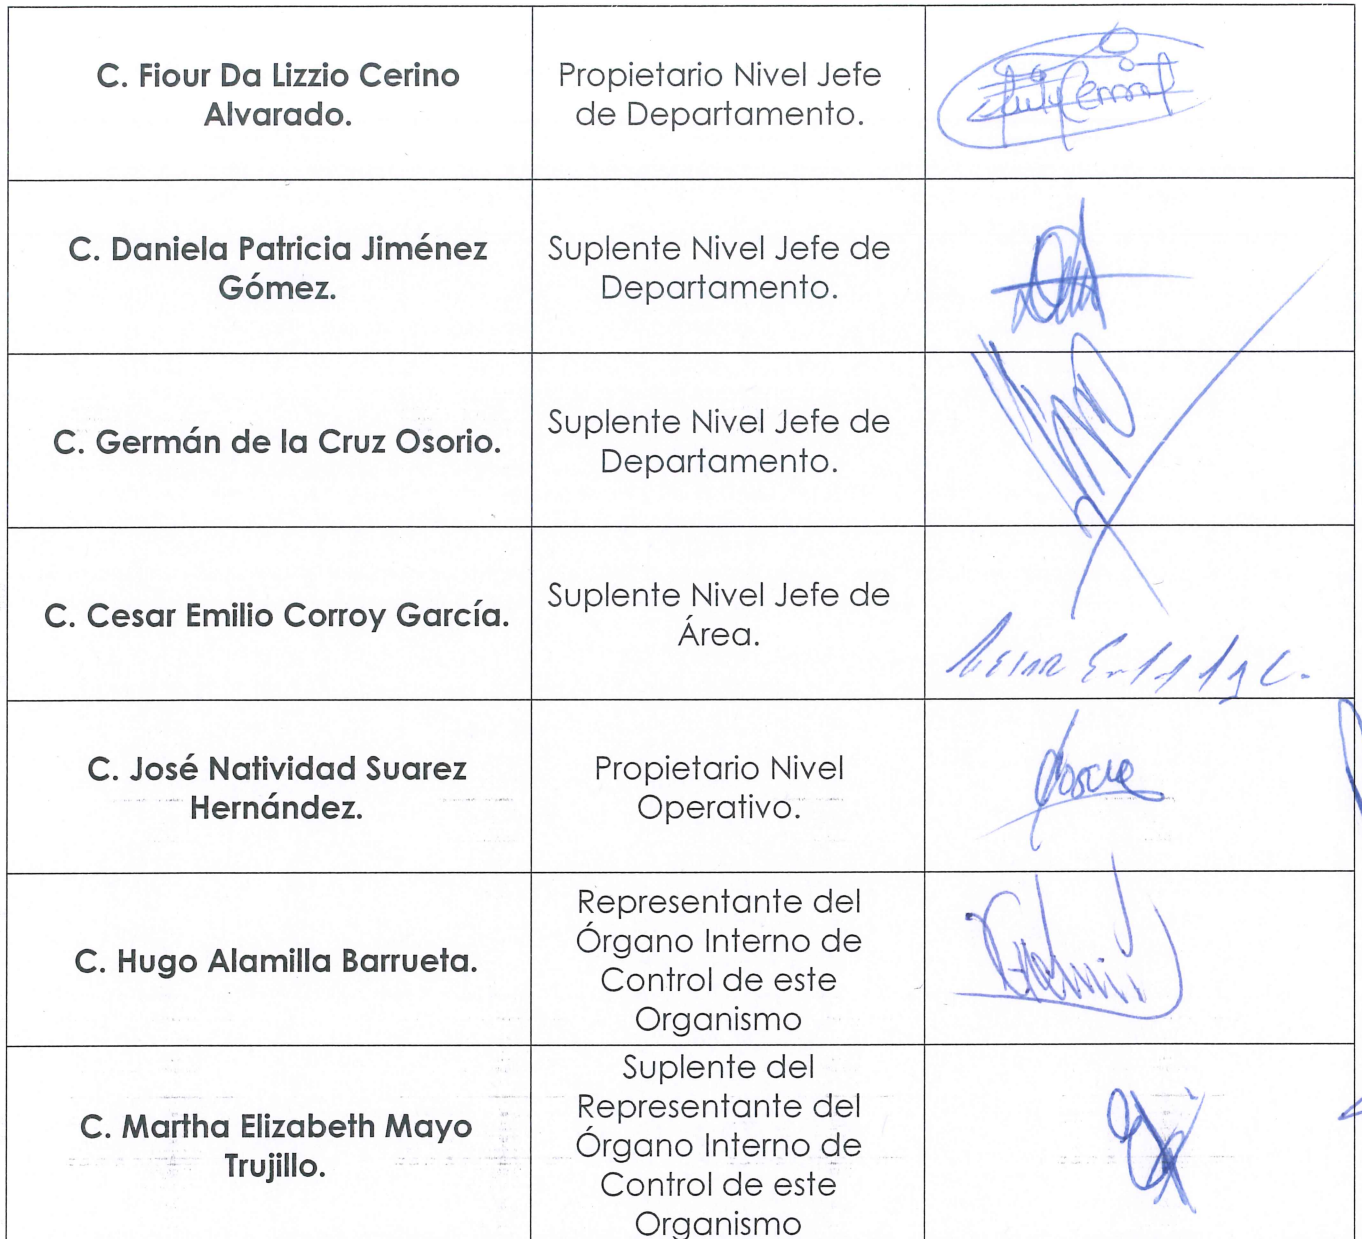 C. Fiour Da Lizzio Cerino
Alvarado.
Propietario Nivel Jefe
de Departamento.
C. Daniela Patricia Jiménez
Gómez.
Suplente Nivel Jefe de
Departamento.
C. Germán de la Cruz Osorio.
Suplente Nivel Jefe de
Departamento.
C. Cesar Emilio Corroy García.
Suplente Nivel Jefe de
Área.
C. José Natividad Suarez
Hernández.
Propietario Nivel
Operativo.
C. Hugo Alamilla Barrueta.
Representante del
Órgano Interno de
Control de este
Organismo
C. Martha Elizabeth Mayo
Trujillo.
Suplente del
Representante del
Órgano Interno de
Control de este
Organismo